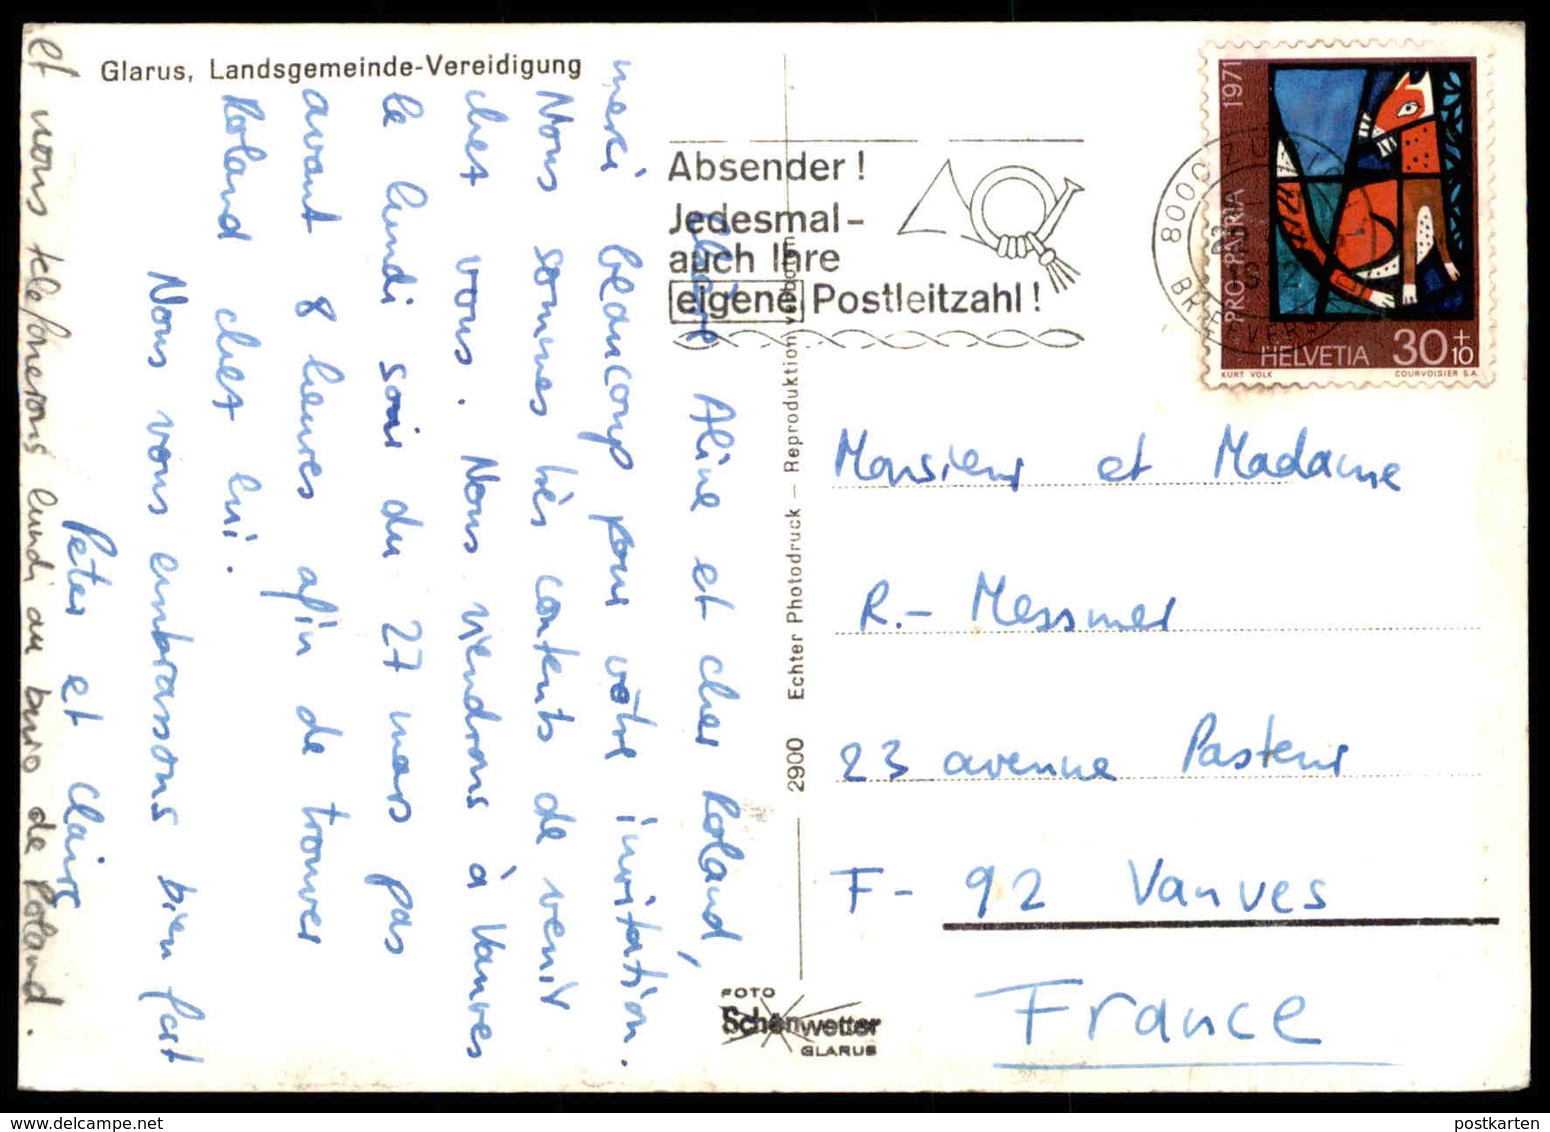 Glarus, Landsgemeinde-Vereidigung
Chère Aline et cher Roland,
merci beaucoup pour votre invitation.
Nous sommes très contents de venir
chez vous. Nous viendrons à Vanves
le lundi soir du 27 mars pas
avant 8 heures afin de trouver
Roland chez lui.
Nous vous embrassons bien fort
Peter et Claire
et nous telefonerons lundi au buro de Roland.
Absender!
Jedesmal-
auch Ihre
eigene Postleitzahl!
8000
BRIEFVERS
PRO PATRIA 1971
HELVETIA 30+10
KURT VOLK COURVOISIER S.A.
2900 Echter Photodruck — Reproduktion verboten
FOTO
Schönwetter
GLARUS
Monsieur et Madame
R.- Messmer
23 avenue Pasteur
F- 92 Vanves
France
postkarten